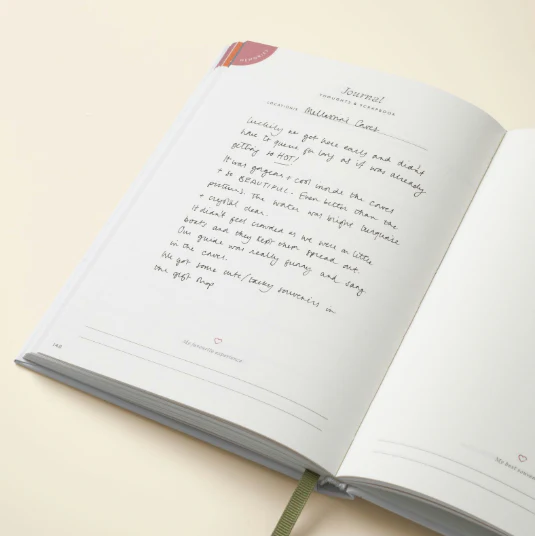 JOURNAL
Journal
THOUGHTS & SCRAPBOOK
LOCATION(S) Melissani Caves
Luckily we got here early and didn't
have to queue for long as it was already
getting so HOT!
It was gorgeous + cool inside the caves
+ so BEAUTIFUL. Even better than the
pictures. The water was bright turquoise
+ crystal clear.
It didn't feel crowded as we were in little
boats and they kept them spread out.
Our guide was really funny and sang
in the caves.
We got some cute/tacky souvenirs in
the gift shop
My favourite experience
My best